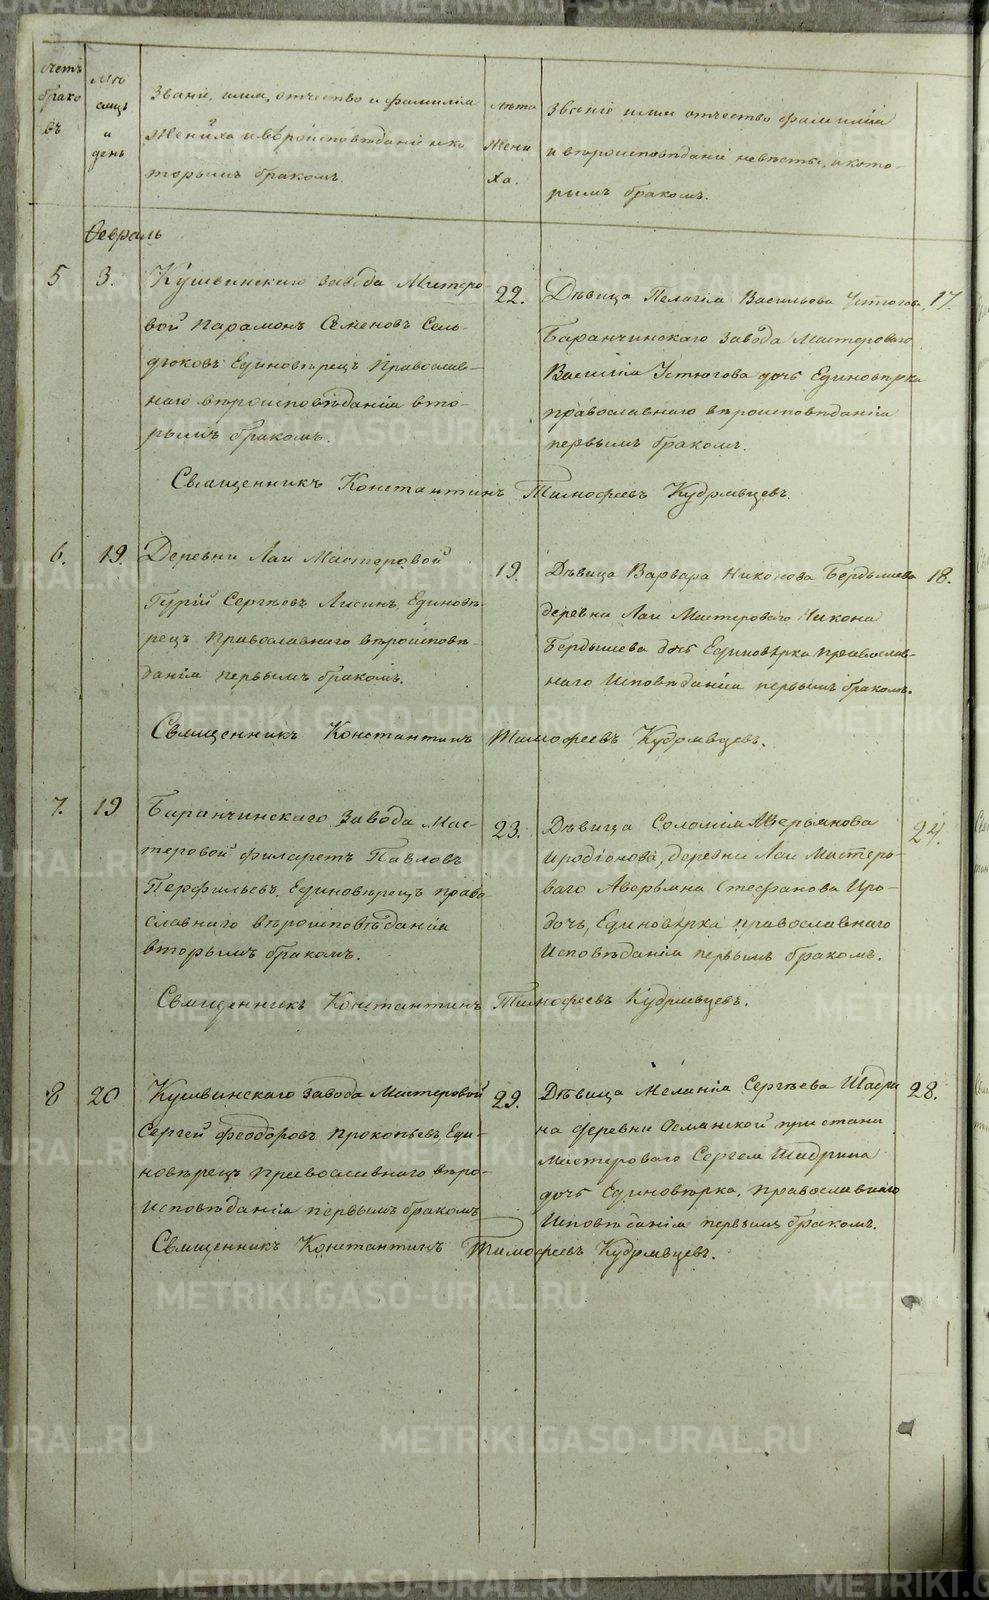 Счетъ
брако
въ
Мѣс
яцъ
и
день
Званіе, имя, отчество и фамилія
Жениха и вѣроисповѣданіе и ко
торымъ бракомъ.
Лѣта
Жени
ха.
Званіе имя отчество фамилія
и вѣроисповѣданіе невѣсты, и кото-
рымъ бракомъ.
Февраль
5
3.
Кушвинскаго завода Мастеро
вой Парамонъ Семеновъ Сель-
дюковъ Единовѣрецъ Православ-
наго вѣроисповѣданія вто-
рымъ бракомъ.
22.
Дѣвица Пелагія Васильева Устюгова
Баранчинскаго завода Мастероваго
Василія Устюгова дочь Единовѣрка
православнаго вѣроисповѣданія
первымъ бракомъ.
17.
Священникъ Константинъ Тимофеевъ Кудрявцевъ.
6.
19.
Деревни Лаи Мастеровой
Гурій Сергѣевъ Лисинъ, Единовѣ-
рецъ Православнаго вѣроисповѣ-
данія первымъ бракомъ.
19.
Дѣвица Варвара Никонова Бердышева
деревни Лаи Мастероваго Никона
Бердышева дочь Единовѣрка православ-
наго Исповѣданія первымъ бракомъ.
18.
Священникъ Константинъ Тимофеевъ Кудрявцевъ.
7.
19
Баранчинскаго завода Мас-
теровой Филаретъ Павловъ
Перфильевъ, Единовѣрецъ право
славнаго вѣроисповѣданія
вторымъ бракомъ.
23.
Дѣвица Соломія Аверьянова
Иродіонова, деревни Лаи Мастеро-
ваго Аверьяна Стефанова Иро-
дочь, Единовѣрка православнаго
Исповѣданія первымъ бракомъ.
24.
Священникъ Константинъ Тимофеевъ Кудрявцевъ.
8
20
Кушвинскаго завода Мастеровой
Сергей Феодоровъ Прокопьевъ Еди-
новѣрецъ Православнаго вѣро-
исповѣданія первымъ бракомъ
29.
Дѣвица Меланія Сергѣева Шадри
на деревни Ослянской пристани
Мастероваго Сергея Шадрина
дочь Единовѣрка, православнаго
Исповѣданія первымъ бракомъ.
28.
Священникъ Константинъ Тимофеевъ Кудрявцевъ.
METRIKI.GASO-URAL.RU